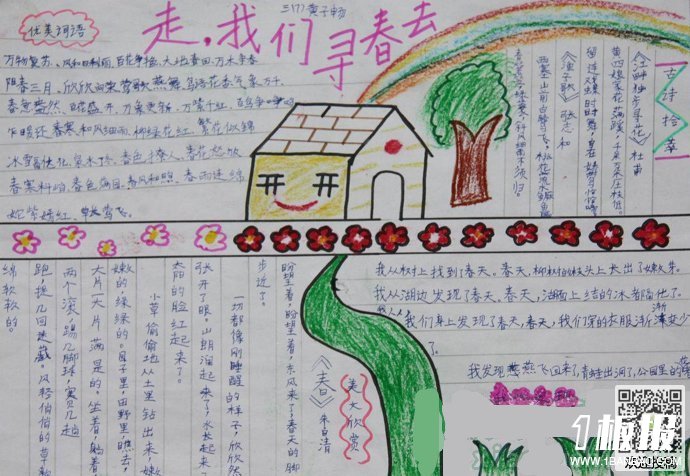 三(7)黄子畅
走,我们寻春去
优美词语
万物复苏、风和日丽、百花争艳、大地春回、万木争春
阳春三月、欣欣向荣、莺歌燕舞、鸟语花香、气象万千
春意盎然、百花盛开、万象更新、万紫千红、百鸟争鸣
乍暖还寒、和风细雨、柳绿花红、繁花似锦
春寒料峭、春色满园、春风和煦、春雨连绵
姹紫嫣红、草长莺飞。
古诗拾萃
《江畔独步寻花》 杜甫
黄四娘家花满蹊,千朵万朵压枝低。
留连戏蝶时时舞,自在娇莺恰恰啼。
《渔歌子》 张志和
西塞山前白鹭飞,桃花流水鳜鱼肥
斜风细雨不须归。
美文欣赏
《春》 朱自清
盼望着,盼望着,东风来了,春天的脚
步近了。
一切都像刚睡醒的样子,欣欣然
张开了眼。山朗润起来了,水长起来
太阳的脸红起来了。
小草偷偷地从土里钻出来,嫩
嫩的,绿绿的。园子里,田野里,瞧去,
大片一大片满是的。坐着,躺着
两个滚,踢几脚球,赛几趟
跑,捉几回迷藏。风轻悄悄的,草软
绵软软的。
我从树上找到了春天。春天,柳树的枝头上长出了嫩芽。
我从湖边发现了春天。春天,湖面上结的冰都融化了。
我从人们身上发现了春天。春天,我们穿的衣服渐渐变少
了。
我发现燕燕飞回来了,青蛙出洞了,公园里的
1板报
WWW.1BANBAO.COM